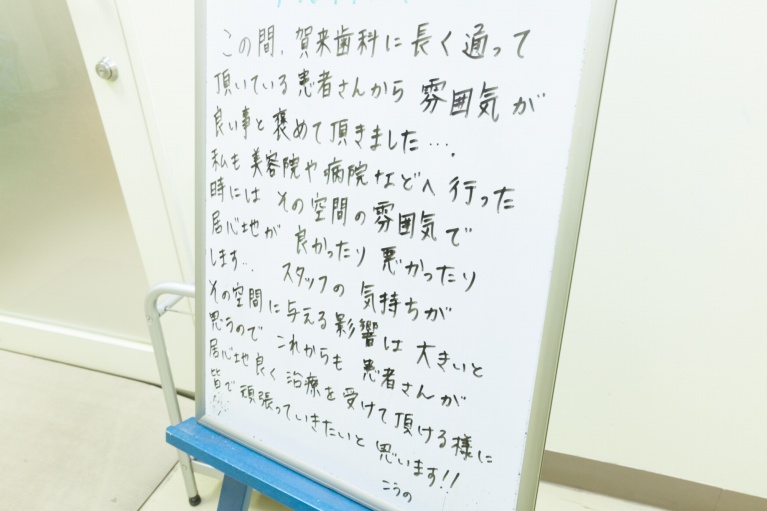 この間、賀来歯科に長く通って
頂いている患者さんから雰囲気が
良い事と褒めて頂きました….
私も美容院や病院などへ行った
時にはその空間の雰囲気で
居心地が良かったり悪かったり
します… スタッフの気持ちが
その空間に与える影響は大きいと
思うのでこれからも患者さんが
居心地良く治療を受けて頂ける様に
皆で頑張っていきたいと思います!!
こうの